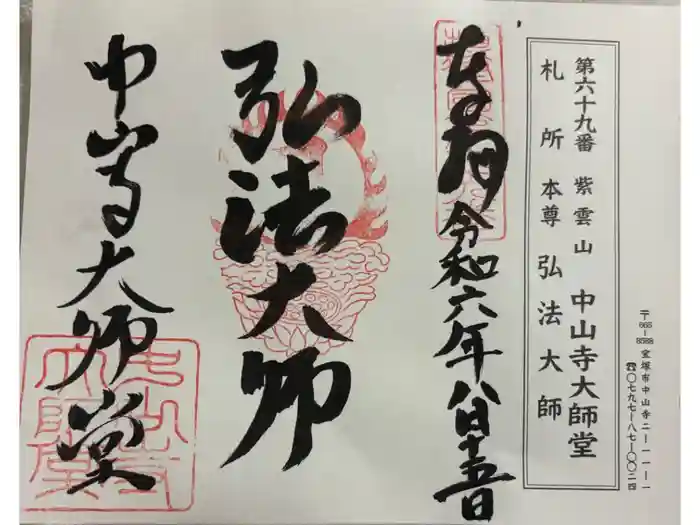 〒665-8588 宝塚市中山寺二ー一一ー一
☎〇七九七ー八七ー〇〇二四
第六十九番 紫雲山 中山寺大師堂
札所本尊 弘法大師
奉拝 令和六年八月十五日
弘法大師
中山寺大師堂